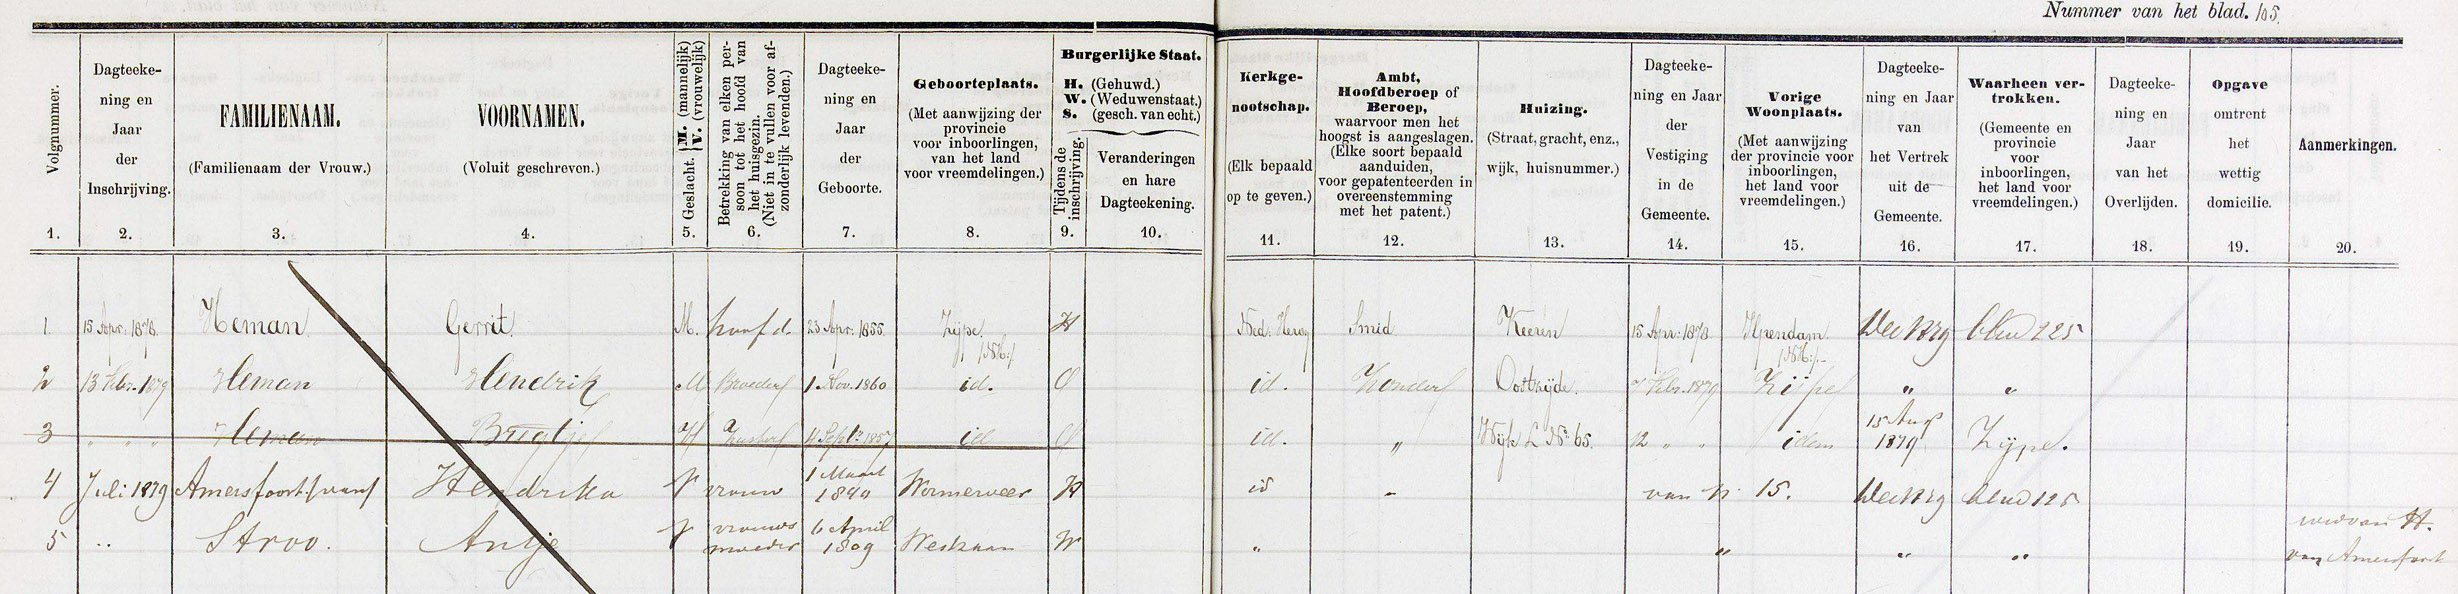 Nummer van het blad. 105.
Volgnummer.
1.
Dagteeke-
ning en
Jaar
der
Inschrijving.
2.
FAMILIENAAM.
(Familienaam der Vrouw.)
3.
VOORNAMEN.
(Voluit geschreven.)
4.
Geslacht. M. (mannelijk)
V. (vrouwelijk)
5.
Betrekking van elken per-
soon tot het hoofd van
het huisgezin.
(Niet in te vullen voor af-
zonderlijk levenden.)
6.
Dagteeke-
ning en
Jaar
der
Geboorte.
7.
Geboorteplaats.
(Met aanwijzing der
provincie
voor inboorlingen,
van het land
voor vreemdelingen.)
8.
Burgerlijke Staat.
H. (Gehuwd.)
W. (Weduwenstaat.)
S. (gesch. van echt.)
Tijdens de
inschrijving.
9.
Veranderingen
en hare
Dagteekening.
10.
Kerkge-
nootschap.
(Elk bepaald
op te geven.)
11.
Ambt,
Hoofdberoep of
Beroep,
waarvoor men het
hoogst is aangeslagen.
(Elke soort bepaald
aanduiden,
voor gepatenteerden in
overeenstemming
met het patent.)
12.
Huizing.
(Straat, gracht, enz.,
wijk, huisnummer.)
13.
Dagteeke-
ning en Jaar
der
Vestiging
in de
Gemeente.
14.
Vorige
Woonplaats.
(Met aanwijzing
der provincie voor
inboorlingen,
het land voor
vreemdelingen.)
15.
Dagteeke-
ning en Jaar
van
het Vertrek
uit de
Gemeente.
16.
Waarheen ver-
trokken.
(Gemeente en
provincie
voor
inboorlingen,
het land voor
vreemdelingen.)
17.
Dagteeke-
ning en
Jaar
van het
Overlijden.
18.
Opgave
omtrent
het
wettig
domicilie.
19.
Aanmerkingen.
20.
1 15 Apr: 1878. Heman Gerrit M. hoofd. 23 Apr: 1855. Zijpe (NH:) H Ned: Herv: Smid Keeren 15 Apr: 1878 Ilpendam (NH:) blad 225
2 13 Febr. 1879 Heman Hendrik M Broeder 1 Nov. 1860 id. O id. Zonder Oostzijde. 7 Febr. 1879 Zijpe " "
3 " " " Heman V Zuster 4 Sept. 1857 id O id. " Wijk L No. 65. 12 " " idem 15 Aug 1879 Zijpe.
4 Juli 1879 Amersfoort (van) Hendrika V vrouw 1 Maart 1840 Wormerveer H id - van N. 15. blad 125
5 " Stroo. Antje V vrouws moeder 6 April 1809 Westzaan W " " " " wed van H. van Amersfoort